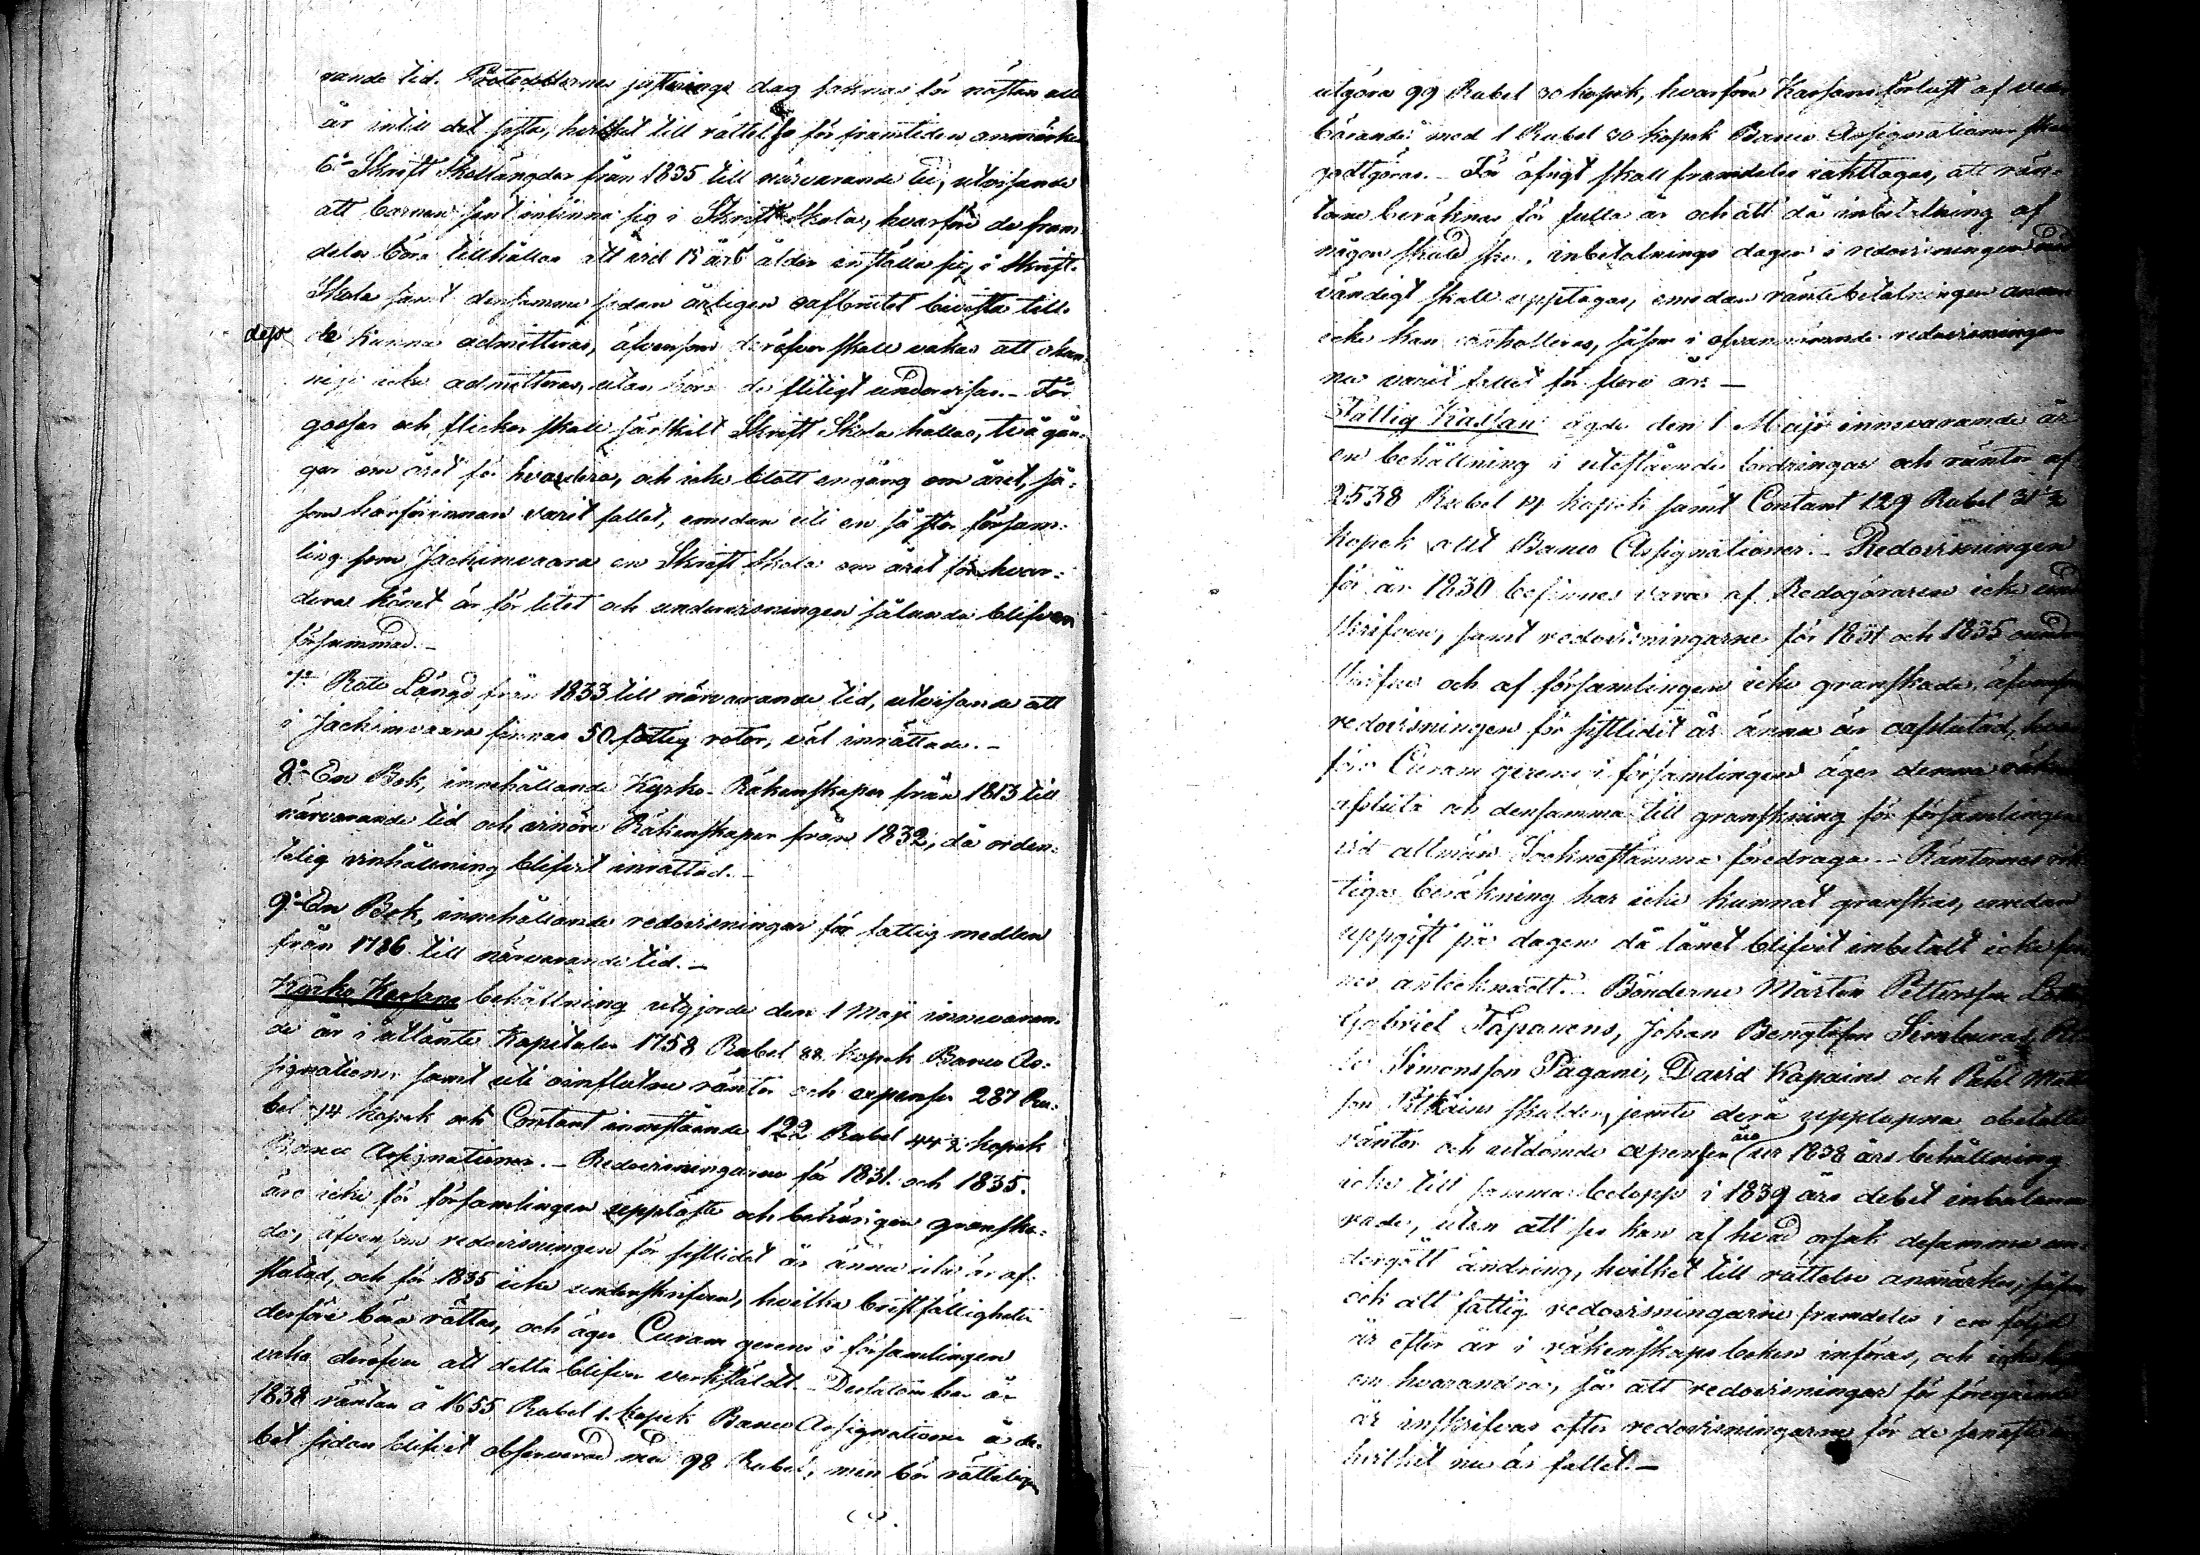 rande tid. Protocollernes justerings dag saknas för nästan alla
år intill det sista, hvilket till rättelse för framtiden anmärkes
6:o Skrift Skollängder från 1835 till närvarande tid, utvisande
att barnen sent infinna sig i Skrift Skola, hvarföre de fram
deles böra tillhållas att vid 15 års ålder inställa sig i Skrift-
Skola samt densamma sedan årligen oafbrutet bevista till
dess de kunna admitteras, äfvensom deröfver skall vakas att okun
nige icke admitteras, utan böra de flitigt undervisas. – För
gossar och flickor skall särskilt Skrift Skola hållas, två gån-
gar om året för hvardera, och icke blott engång om året, så-
som härförinnan varit fallet, emedan uti en så stor försam-
ling som Jachimvaara en Skrift Skola om året för hvar-
dera könet är för litet och undervisningen sålunda blifven
försummad. –
7:o Rote Längd från 1833 till närvarande tid, utvisande att
i Jachimvaara finnas 50 fattig rotor, väl inrättade. –
8:o En Bok, innehållande Kyrko-Räkenskaper från 1813 till
närvarande tid och Räkenskaper från 1832, då orden-
telig vinhållning blifvit inrättad. –
9:o En Bok, innehållande redovisningar för fattig medlen
från 1786 till närvarande tid. –
Kyrko Kassans behållning utgjorde den 1 Maji innevaran-
de år i utlånte Kapitaler 1758 Rubel 88 kopek Banco As-
signationer samt uti oinflutne räntor och expenser 287 Ru-
bel 74 kopek och Contant innestående 122 Rubel 44 ½ kopek
Banco Assignationer. – Redovisningarne för 1831 och 1835
äro icke för församlingen uppläste och behörigen granska-
de, äfvensom redovisningen för sistlidet år ännu icke är af-
slutad, och för 1835 icke underskrifven, hvilka bristfälligheter
derföre böra rättas, och äger Curam gerens i församlingen
vaka deröfver att detta blifver verkstäldt. – Dessutom har år
1838 räntan å 1655 Rubel 1 kopek Banco Assignationer i de-
bet sidan blifvit observerad med 98 Rubel, men bör rätteligen
utgöra 99 Rubel 30 kopek, hvarföre Kassans förlust af veder
börande med 1 Rubel 30 kopek Banco Assignationer skall
godtgöras. – För öfrigt skall framdeles iakttagas, att rän-
torne beräknas för fulla år och att då inbetalning af
någon skuld sker, inbetalnings dagen i redovisningen
vändigt skall upptagas, emedan räntebetalningen annars
icke kan controlleras, såsom i ofvannämnde redovisningar
nu varit fallet för flere år. –
Fattig Kassan ägde den 1 Maji innevarande år
en behållning i utestående fordringar och räntor af
2538 Rubel 14 kopek samt Contant 129 Rubel 31 ½
kopek allt Banco Assignationer. – Redovisningen
för år 1830 befinnes vara af Redogöraren icke under
skrifven, samt redovisningarne för 1831 och 1835
skrifne och af församlingen icke granskade, äfvensom
redovisningen för sistlidit år ännu är oafslutad, hvar
före Curam gerens i församlingen äger denna
afsluta och densamma till granskning för församlingen
vid allmän Sockenstämma föredraga. – Räntornes rik
tiga beräkning har icke kunnat granskas, emedan
uppgift på dagen då lånet blifvit inbetalt icke fin
nes antecknadt. Bönderne Mårten Pettersson
Gabriel Tapanens, Johan Bengtsson
Simonsson Pagani, David Kapains och Påhl
son skulder, jemte derå upplupna obetalte
räntor och utdömde expenser äro ur 1838 års behållning
icke till samma belopp i 1839 års debet inbalance
rade, utan att ses kan af hvad orsak desamma un-
dergått ändring, hvilket till rättelse anmärkes, såsom
ock att fattig redovisningarne framdeles i en följd
år efter år i räkenskaps boken införas, och icke
om hvarandra, så att redovisningar för föregående
år inskrifvas efter redovisningarne för de senaste
hvilket nu är fallet. –